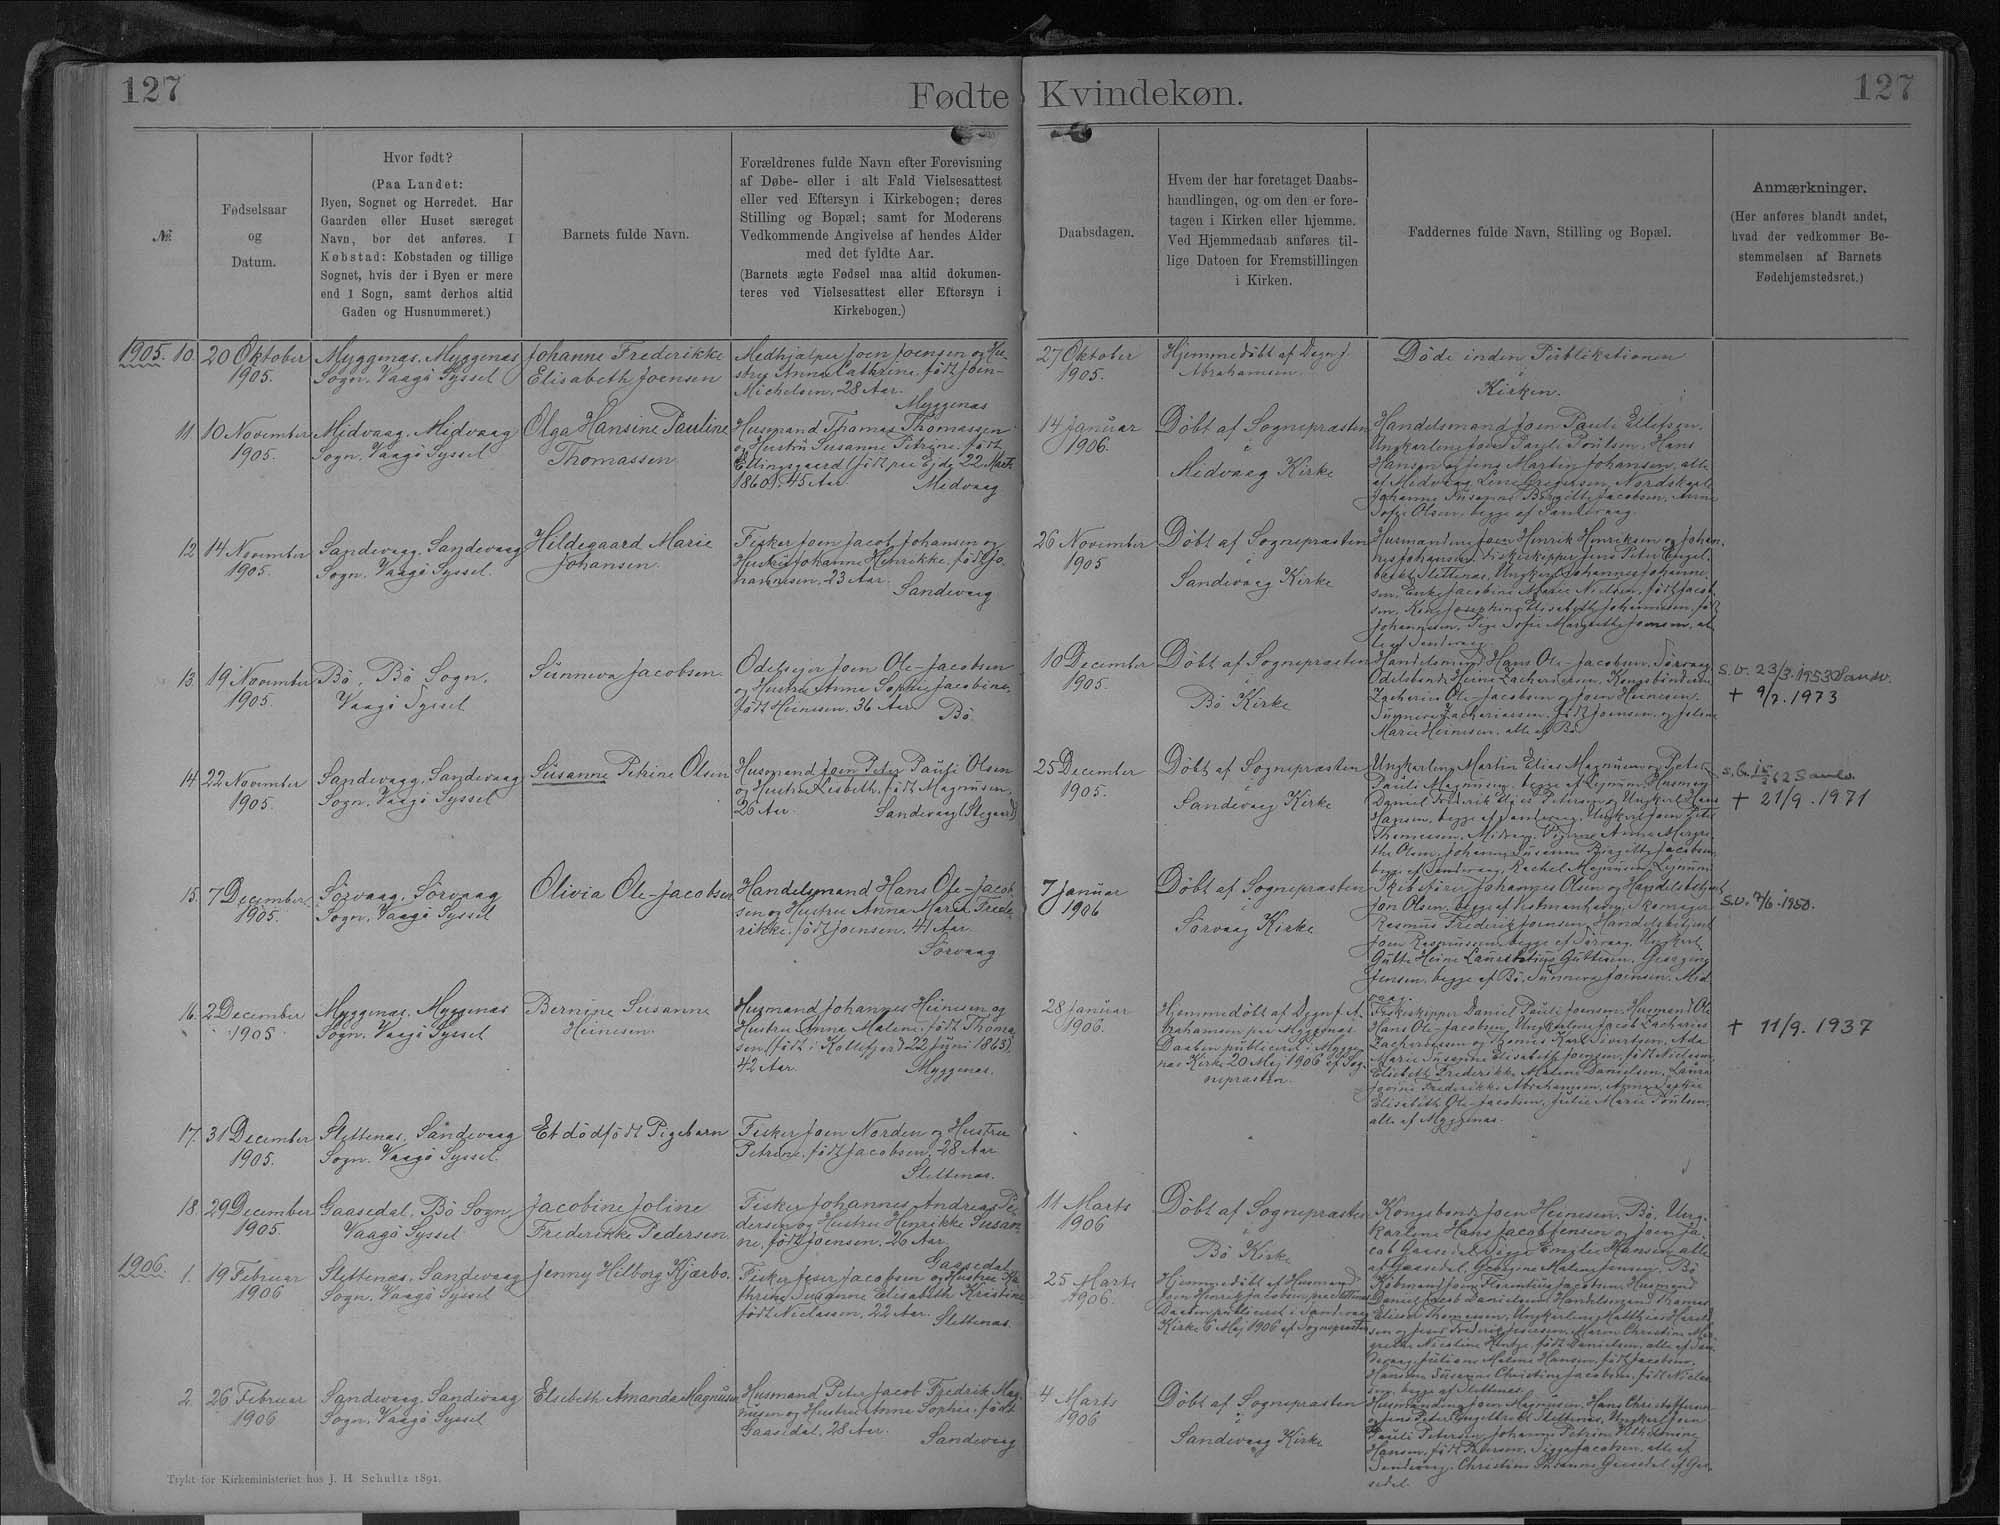 127
Fødte
Kvindekøn.
127
№
Fødselsaar
og
Datum.
Hvor født?
(Paa Landet:
Byen, Sognet og Herredet. Har
Gaarden eller Huset særeget
Navn, bor det anføres. I
Købstad: Købstaden og tillige
Sognet, hvis der i Byen er mere
end 1 Sogn, samt derhos altid
Gaden og Husnummeret.)
Barnets fulde Navn.
Forældrenes fulde Navn efter Forevisning
af Døbe- eller i alt Fald Vielsesattest
eller ved Eftersyn i Kirkebogen; deres
Stilling og Bopæl; samt for Moderens
Vedkommende Angivelse af hendes Alder
med det fyldte Aar.
(Barnets ægte Fødsel maa altid dokumen-
teres ved Vielsesattest eller Eftersyn i
Kirkebogen.)
Daabsdagen.
Hvem der har foretaget Daabs-
handlingen, og om den er fore-
tagen i Kirken eller hjemme.
Ved Hjemmedaab anføres til-
lige Datoen for Fremstillingen
i Kirken.
Faddernes fulde Navn, Stilling og Bopæl.
Anmærkninger.
(Her anføres blandt andet,
hvad der vedkommer Be-
stemmelsen af Barnets
Fødehjemstedsret.)
1905. 10.
20 Oktober
1905.
Myggenæs, Myggenæs
Sogn, Vaagö Syssel
Johanne Frederikke
Elisabeth Joensen
Medhjælper Joen Joensen og Hu-
stru Anna Cathrine, født Joen-
Michelsen, 28 Aar.
Myggenæs
27 Oktober
1905.
Hjemmedöbt af Degn J.
Abrahamsen.
Döde inden Publikationen
i
Kirken.
11.
10 November
1905.
Midvaag, Midvaag
Sogn, Vaagö Syssel
Olga Hansine Pauline
Thomassen
Husmand Thomas Thomassen
og Hustru Susanne Petrine, født
Ellingsgaard (født paa Ejde 22 Marts
1860). 45 Aar. Midvaag
14 Januar
1906.
Döbt af Sognepræsten
i
Midvaag Kirke
Handelsmand Joen Pauli Ellefsen,
Ungkarlene Joen Pauli Poulsen, Hans
Hansen og Jens Martin Johansen, alle
af Midvaag,
Johanne Susanne Birgitte Jacobsen, Anne
Sofie Olsen, begge af Sandevaag.
12
14 November
1905.
Sandevaag, Sandevaag
Sogn, Vaagö Syssel.
Hildegaard Marie
Johansen.
Fisker Joen Jacob Johansen og
Hustru Johanne Henrikke, født Jo-
hannesen, 23 Aar.
Sandevaag
26 November
1905
Döbt af Sognepræsten
i
Sandevaag Kirke
Husmændene Joen Henrik Henriksen og Johan-
nes Johansen, Fiskeskipper Jens Peter Engel-
brekt Slettenæs, Ungkarl Johannes Johanne-
sen, Enke Jacobine Marie Nielsen, født Jacob-
sen, Kone Josephine Elisabeth Johannesen, født
Johannesen, Pige Sofie Margrethe Joensen, al-
le af Sandevaag.
13.
19 November
1905.
Bö, Bö Sogn,
Vaagö Syssel
Sunneva Jacobsen.
Odelsejer Joen Ole-Jacobsen
og Hustru Anne Sophie Jacobine,
født Heinesen, 36 Aar.
Bö.
10 December
1905.
Döbt af Sognepræsten
i
Bö Kirke
Handelsmand Hans Ole-Jacobsen, Sörvaag,
Odelsbonde Heine Zachariasen, Kongsbönderne
Zacharias Ole-Jacobsen og Joen Heinesen,
Sunneva Zachariassen, født Joensen, og Joline
Marie Heinesen, alle af Bö.
s.v. 23/3.1953 Sandv.
+ 9/7.1973
14
22 November
1905.
Sandevaag, Sandevaag
Sogn, Vaagö Syssel
Susanne Petrine Olsen
Husmand Joen Peter Pauli Olsen
og Hustru Lisbeth, født Magnusen,
26 Aar. Sandevaag (Stegaard)
25 December
1905.
Döbt af Sognepræsten
i
Sandevaag Kirke
Ungkarlene Martin Elias Magnusen og Peter
Pauli Magnusen, begge af Lejnum, Husmand
Daniel Frederik Elias Petersen og Ungkarl Hans
Hansen, begge af Sandevaag, Ungkarl Joen Peter
Thomassen, Midvaag, Pigerne Anna Margre-
the Olsen, Johanne Susanne Birgitte Jacobsen,
begge af Sandevaag, Rachel Magnusen, Lejnum.
+ 21/9.1971
15.
7 December
1905.
Sörvaag, Sörvaag
Sogn, Vaagö Syssel
Olivia Ole-Jacobsen
Handelsmand Hans Ole-Jacob-
sen og Hustru Anna Maria Frede-
rikke, født Joensen, 41 Aar.
Sörvaag
7 Januar
1906
Döbt af Sognepræsten
i
Sörvaag Kirke
Skibsförer Johannes Olsen og Handelsbetjent
Jon Olsen, begge af Vestmanhavn, Skomager
Rasmus Frederik Joensen, Handelsbetjent
Joen Rasmussen, begge af Sörvaag, Ungkarl
Gutte Heine Laurentius Guttesen, Georgine
Jensen, begge af Bö, Sunneva Joensen, Mid-
vaag.
s.v. 7/6.1950.
16.
2 December
1905
Myggenæs, Myggenæs
Sogn, Vaagö Syssel
Bernine Susanne
Heinesen.
Husmand Johannes Heinesen og
Hustru Anna Malene, født Thoma-
sen (født i Kollefjord 22 Juni 1863),
42 Aar. Myggenæs.
28 Januar
1906.
Hjemmedöbt af Degn J. A-
brahamsen paa Myggenæs.
Daaben publiceret i Mygge-
næs Kirke 20 Maj 1906 af Sog-
nepræsten.
Fiskeskipper Daniel Pauli Joensen, Husmand Ole
Hans Ole-Jacobsen, Ungkarlene Jacob Zacharias
Zachariassen og Thomas Karl Sivertsen, Ada
Marie Susanne Elisabeth Joensen, født Nielsen,
Elsebeth Frederikke Malene Danielsen, Laura
Jovine Frederikke Abrahamsen, Anna Sophie
Elisabeth Ole-Jacobsen, Julie Marie Poulsen,
alle af Myggenæs.
+ 11/9.1937
17.
31 December
1905.
Slettenæs, Sandevaag
Sogn, Vaagö Syssel.
Et dödfödt Pigebarn
Fisker Joen Norden og Hustru
Petrine, født Jacobsen, 28 Aar.
Slettenæs.
18.
29 December
1905.
Gaasedal, Bö Sogn,
Vaagö Syssel
Jacobine Joline
Frederikke Pedersen
Fisker Johannes Andreas Pe-
dersen og Hustru Henrikke Susan-
ne, født Joensen, 26 Aar.
Gaasedal.
11 Marts
1906
Döbt af Sognepræsten
i
Bö Kirke
Kongsbonde Joen Heinesen, Bö, Ung-
karlene Hans Jacob Jensen og Joen Ja-
cob Gaasedal, Pige Emilie Hansen, alle
af Gaasedal, Georgine Malene Jensen, Bö
1906.
1.
19 Februar
1906
Slettenæs, Sandevaag
Sogn, Vaagö Syssel
Jenny Hilborg Kjærbo.
Fisker Jeser Jacobsen og Hustru Ka-
thrine Susanne Elisabeth Kristine,
født Nielassen, 22 Aar. Slettenæs.
25 Marts
1906.
Hjemmedöbt af Husmand
Joen Henrik Jacobsen paa Slettenæs
Daaben publiceret i Sandevaag
Kirke 6 Maj 1906 af Sognepræsten
Købmand Joen Florentius Jacobsen, Husmand
Daniel Jacob Danielsen, Handelsmand Thomas
Elieser Thomassen, Ungkarlene Matthias Harald-
sen og Jens Frederik Jesersen, Maren Christine Mar-
grethe Nicoline Hentze, født Danielsen, alle af San-
devaag, Juliane Malene Hansen, født Jacobsen,
Hansine Susanne Christine Jacobsen, født Niela-
sen, begge af Slettenæs.
2.
26 Februar
1906
Sandevaag, Sandevaag
Sogn, Vaagö Syssel
Elsebeth Amanda Magnusen
Husmand Peter Jacob Fredrik Mag-
nusen og Hustru Anna Sophie, født
Gaasedal, 28 Aar.
Sandevaag
4 Marts
1906
Döbt af Sognepræsten
i
Sandevaag Kirke
Husmændene Joen Magnusen, Hans Christoffersen
og Jens Peter Engelbrekt Slettenæs, Ungkarl Joen
Pauli Petersen, Johanne Petrine
Hansen, født Petersen, Sigga Jacobsen, alle af
Sandevaag, Christine Susanne Gaasedal af Gaa-
sedal.
Trykt for Kirkeministeriet hos J. H. Schultz 1891.